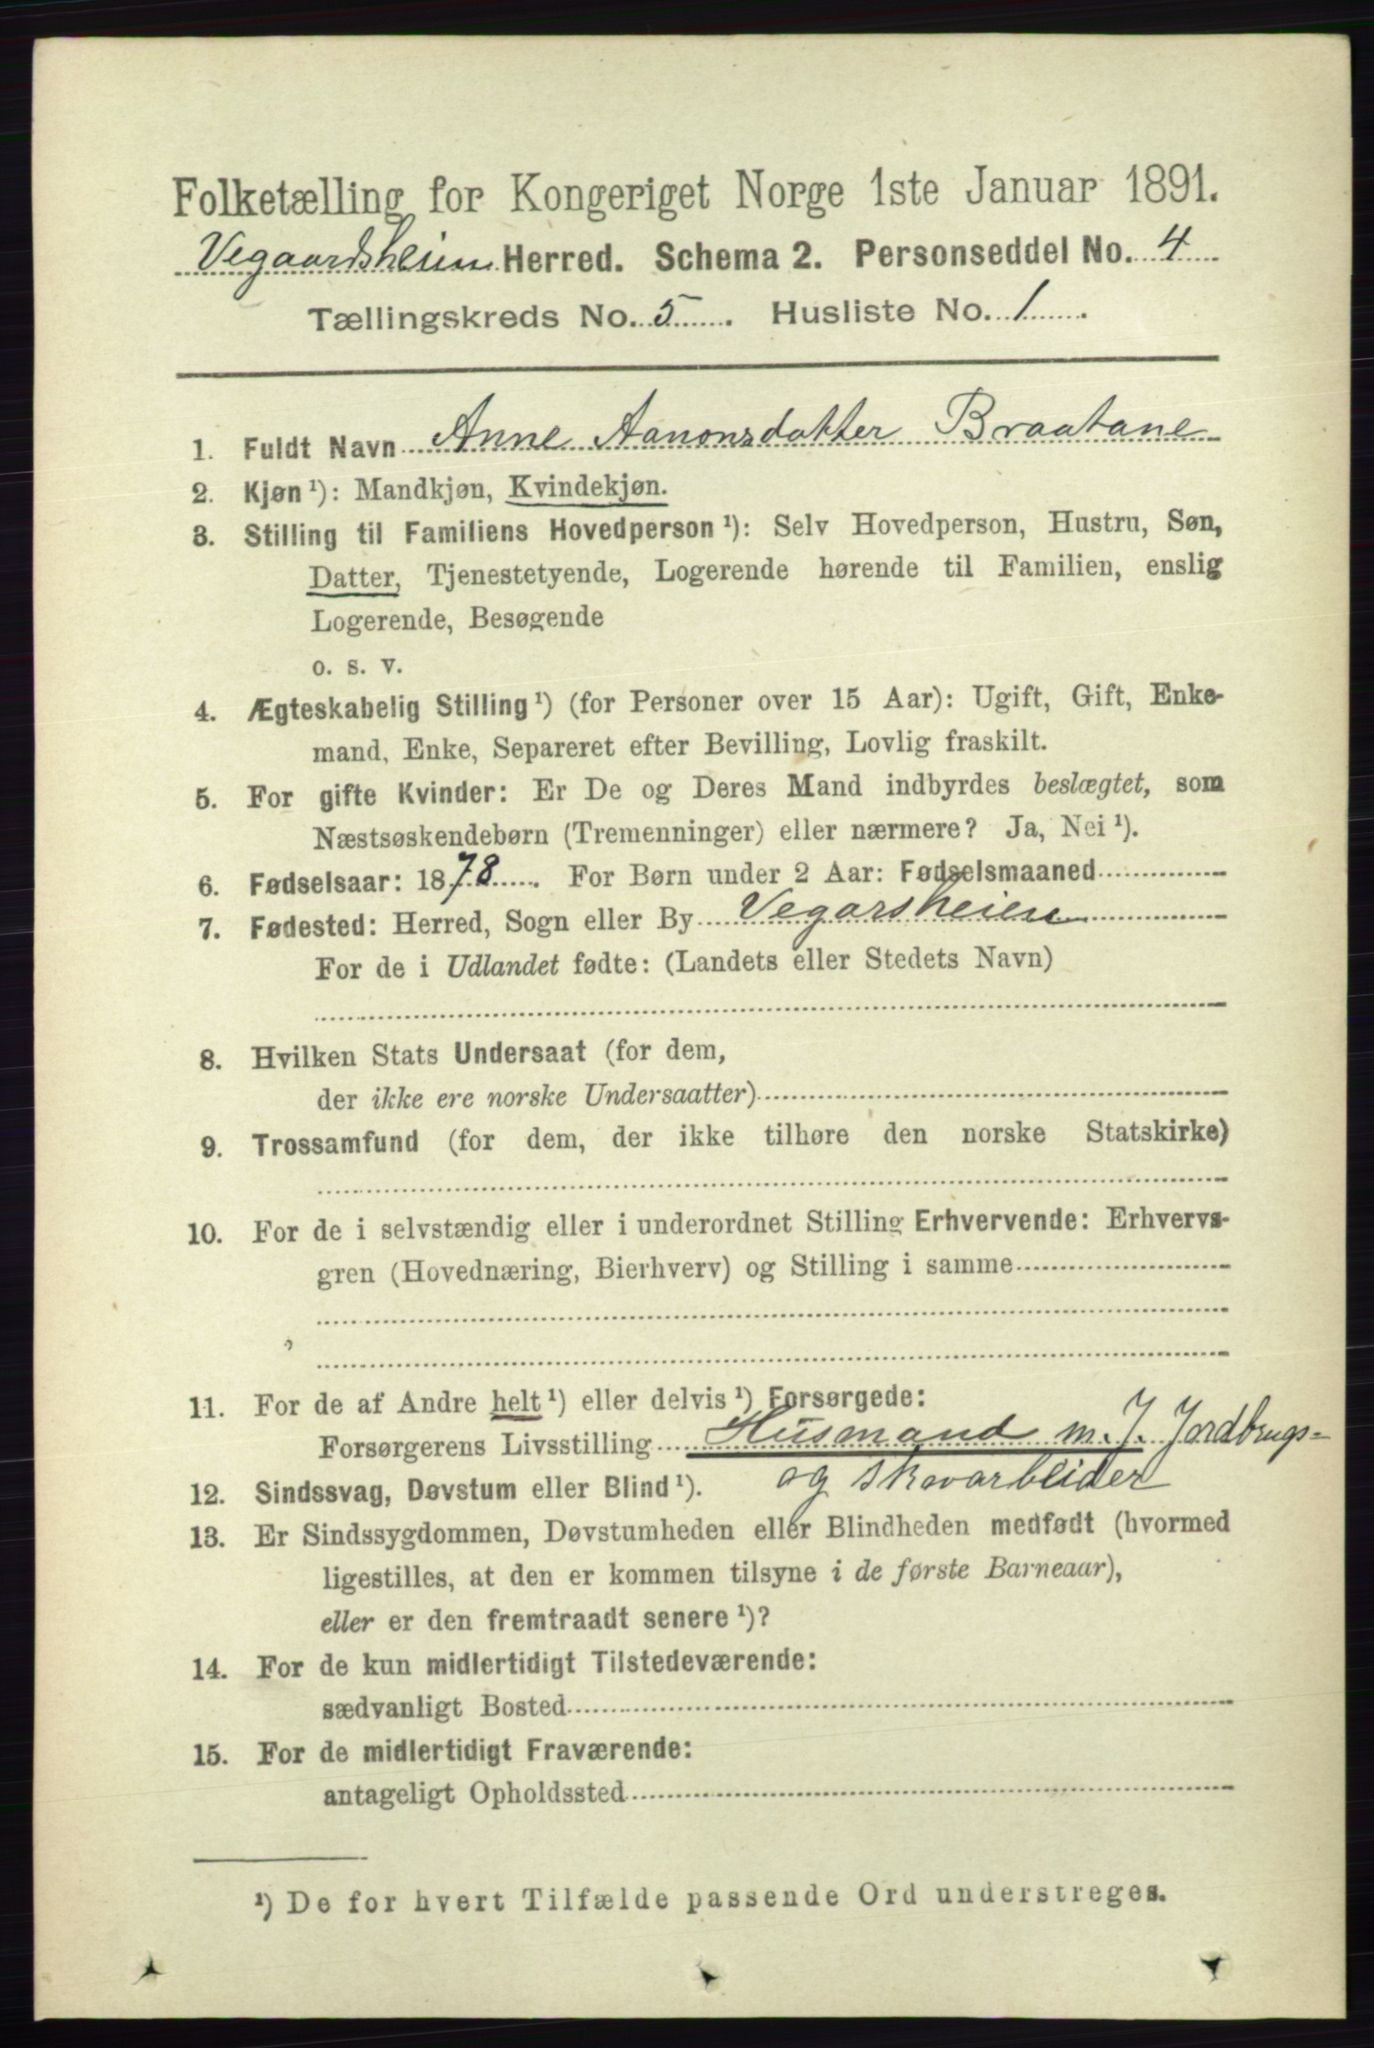 Folketælling for Kongeriget Norge 1ste Januar 1891.
Vegaardsheien Herred. Schema 2. Personseddel No. 4
Tællingskreds No. 5. Husliste No. 1.
1. Fuldt Navn Anne Aanonsdatter Braatane
2. Kjøn ¹): Mandkjøn, Kvindekjøn.
3. Stilling til Familiens Hovedperson ¹): Selv Hovedperson, Hustru, Søn,
Datter, Tjenestetyende, Logerende hørende til Familien, enslig
Logerende, Besøgende
o. s. v.
4. Ægteskabelig Stilling ¹) (for Personer over 15 Aar): Ugift, Gift, Enke-
mand, Enke, Separeret efter Bevilling, Lovlig fraskilt.
5. For gifte Kvinder: Er De og Deres Mand indbyrdes beslægtet, som
Næstsøskendebørn (Tremenninger) eller nærmere? Ja, Nei ¹).
6. Fødselsaar: 1878. For Børn under 2 Aar: Fødselsmaaned
7. Fødested: Herred, Sogn eller By Vegarsheien
For de i Udlandet fødte: (Landets eller Stedets Navn)
8. Hvilken Stats Undersaat (for dem,
der ikke ere norske Undersaatter)
9. Trossamfund (for dem, der ikke tilhøre den norske Statskirke)
10. For de i selvstændig eller i underordnet Stilling Erhvervende: Erhvervs-
gren (Hovednæring, Bierhverv) og Stilling i samme
11. For de af Andre helt ¹) eller delvis ¹) Forsørgede:
Forsørgerens Livsstilling Husmand m. J. Jordbrugs-
12. Sindssvag, Døvstum eller Blind ¹). og skovarbeider
13. Er Sindssygdommen, Døvstumheden eller Blindheden medfødt (hvormed
ligestilles, at den er kommen tilsyne i de første Barneaar),
eller er den fremtraadt senere ¹)?
14. For de kun midlertidigt Tilstedeværende:
sædvanligt Bosted
15. For de midlertidigt Fraværende:
antageligt Opholdssted
¹) De for hvert Tilfælde passende Ord understreges.